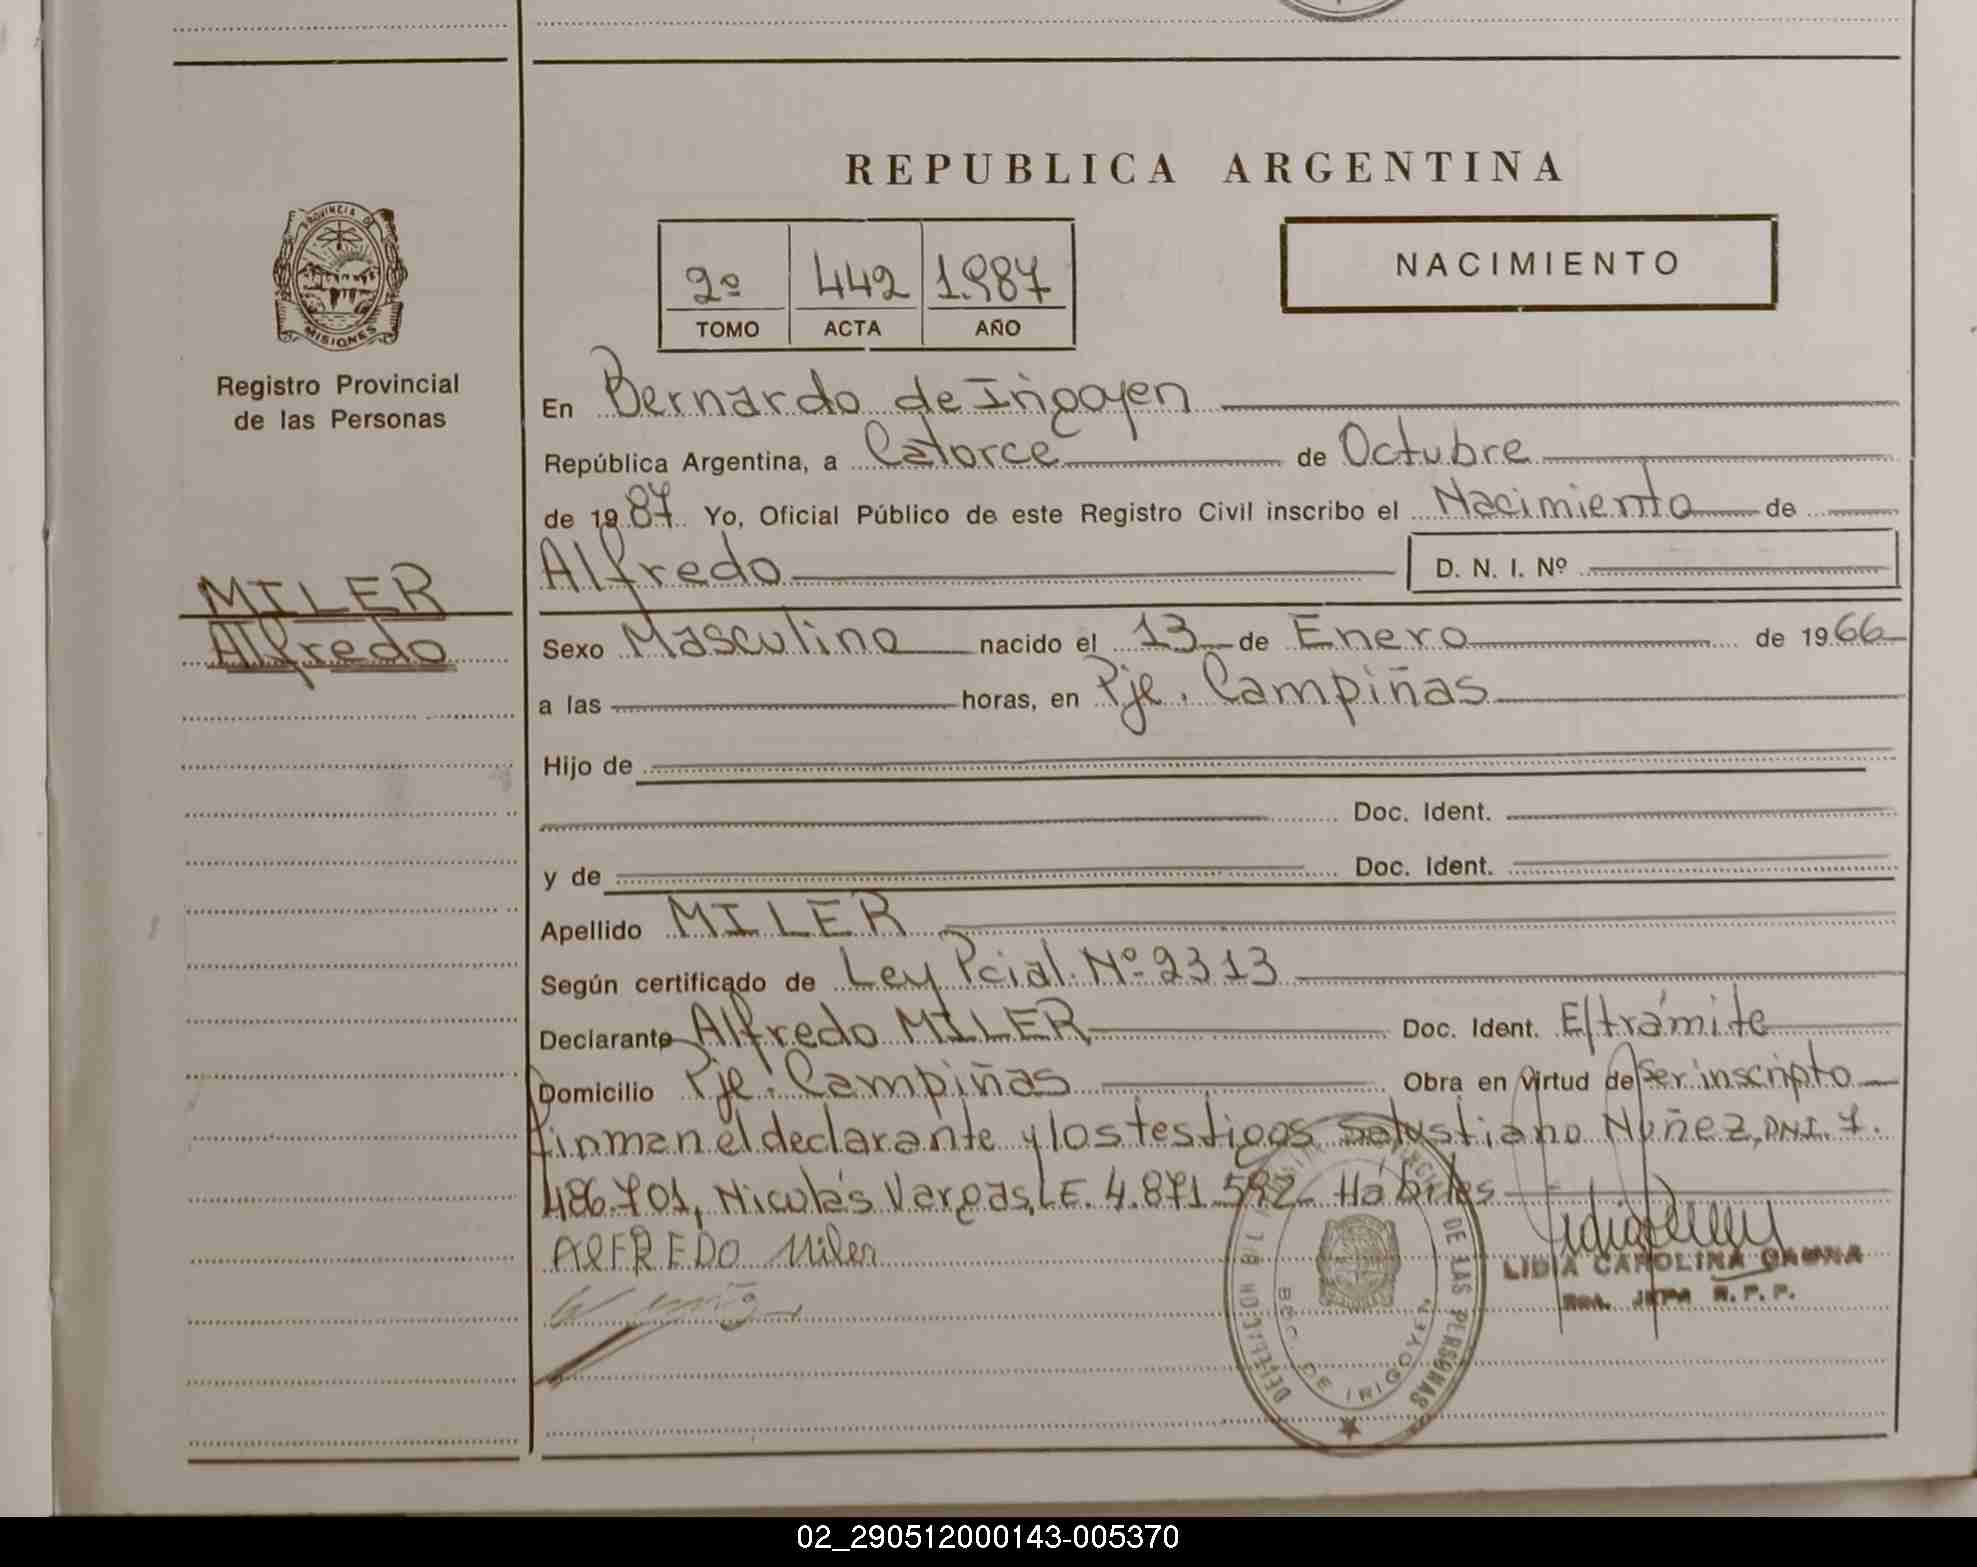 REPUBLICA ARGENTINA
PROVINCIA DE
MISIONES
Registro Provincial
de las Personas
2º 442 1.987
TOMO ACTA AÑO
NACIMIENTO
En Bernardo de Irigoyen
República Argentina, a Catorce de Octubre
de 1987 Yo, Oficial Público de este Registro Civil inscribo el Nacimiento de
Alfredo D. N. I. Nº
MILER
Alfredo
Sexo Masculino nacido el 13 de Enero de 1966
a las horas, en Pje. Campiñas
Hijo de
Doc. Ident.
y de Doc. Ident.
Apellido MILER
Según certificado de Ley Pcial. Nº 2313
Declarante Alfredo MILER Doc. Ident. E/trámite
Domicilio Pje. Campiñas Obra en virtud de ser inscripto
firman el declarante y los testigos Salustiano Nuñez, DNI. 7.
486.701, Nicolás Vargas, L.E. 4.871.592 Hábiles
ALFREDO Miler
LIDIA CAROLINA
R. P. P.
DE LAS PERSONAS
BDO. DE IRIGOYEN
02_290512000143-005370